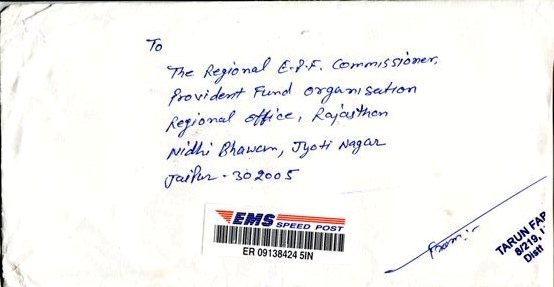 To
The Regional E.P.F. Commissioner,
Provident Fund organisation
Regional office, Rajasthan
Nidhi Bhawan, Jyoti Nagar
Jaipur - 302005
EMS
SPEED POST
ER 09138424 5IN
From:-
TARUN FAB
8/219, I
Distt